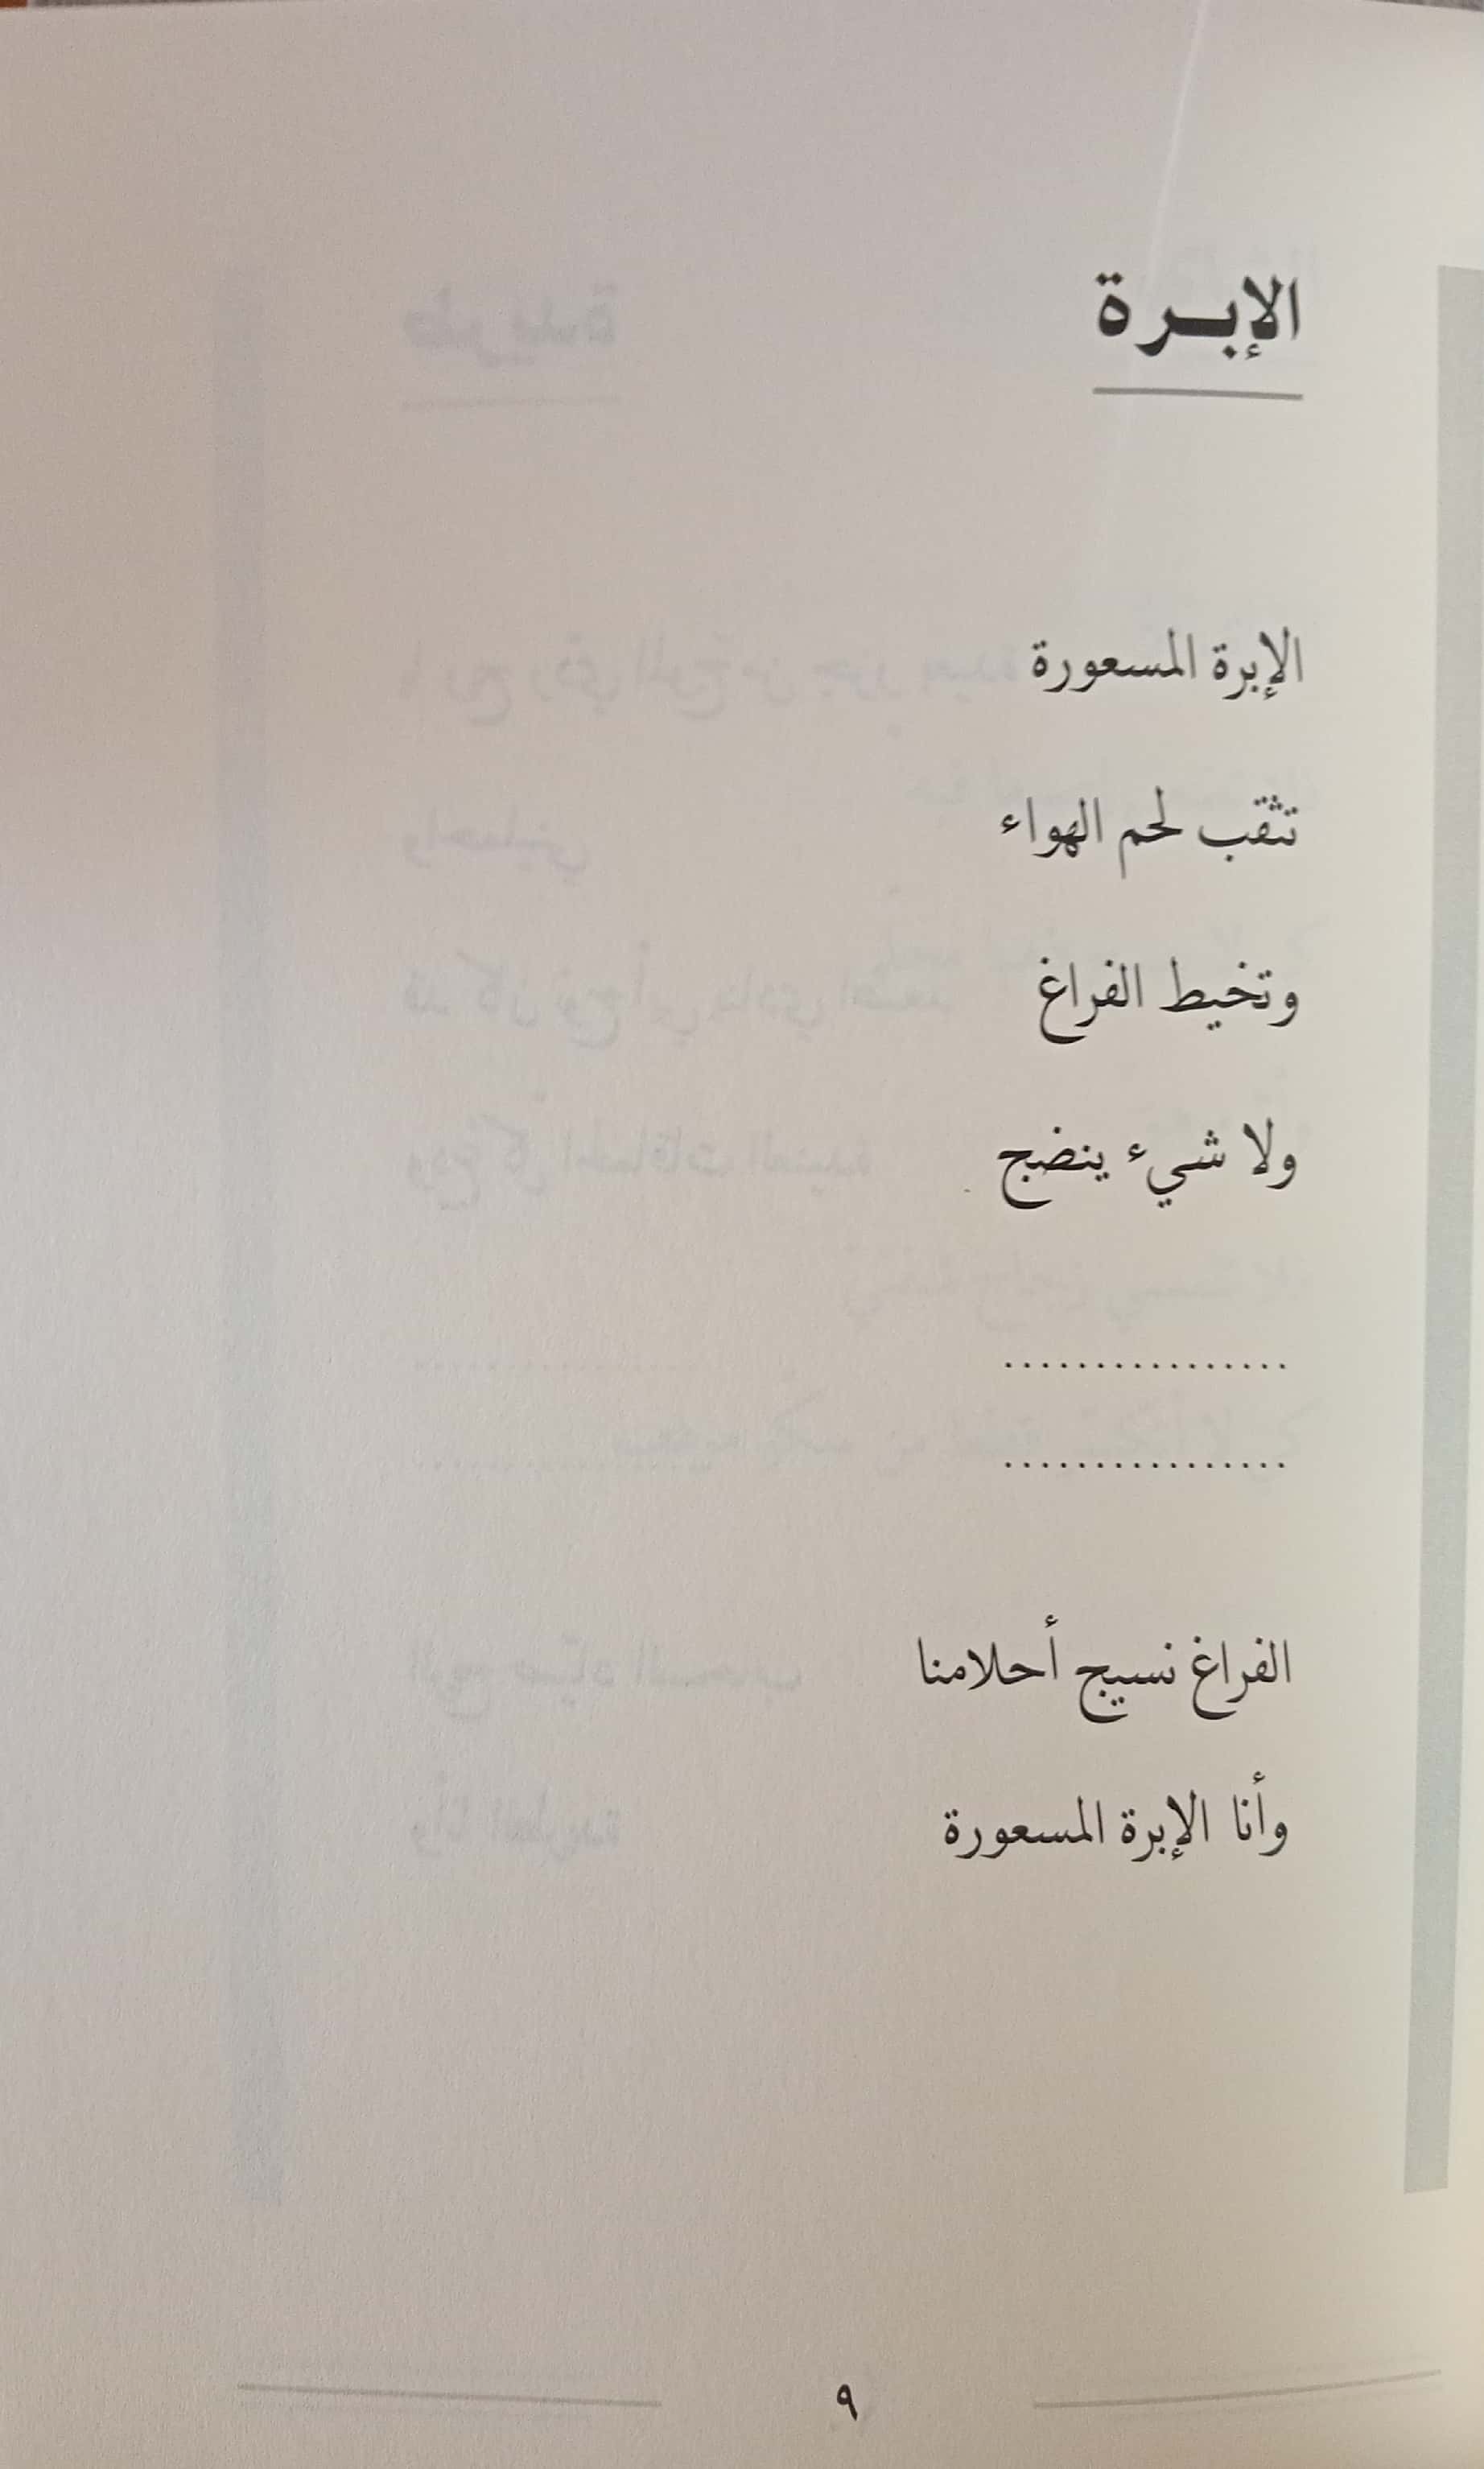 الإبرة
الإبرة المسعورة
تثقب لحم الهواء
وتخيط الفراغ
ولا شيء ينضج
.................
.................
الفراغ نسيج أحلامنا
وأنا الإبرة المسعورة
٩